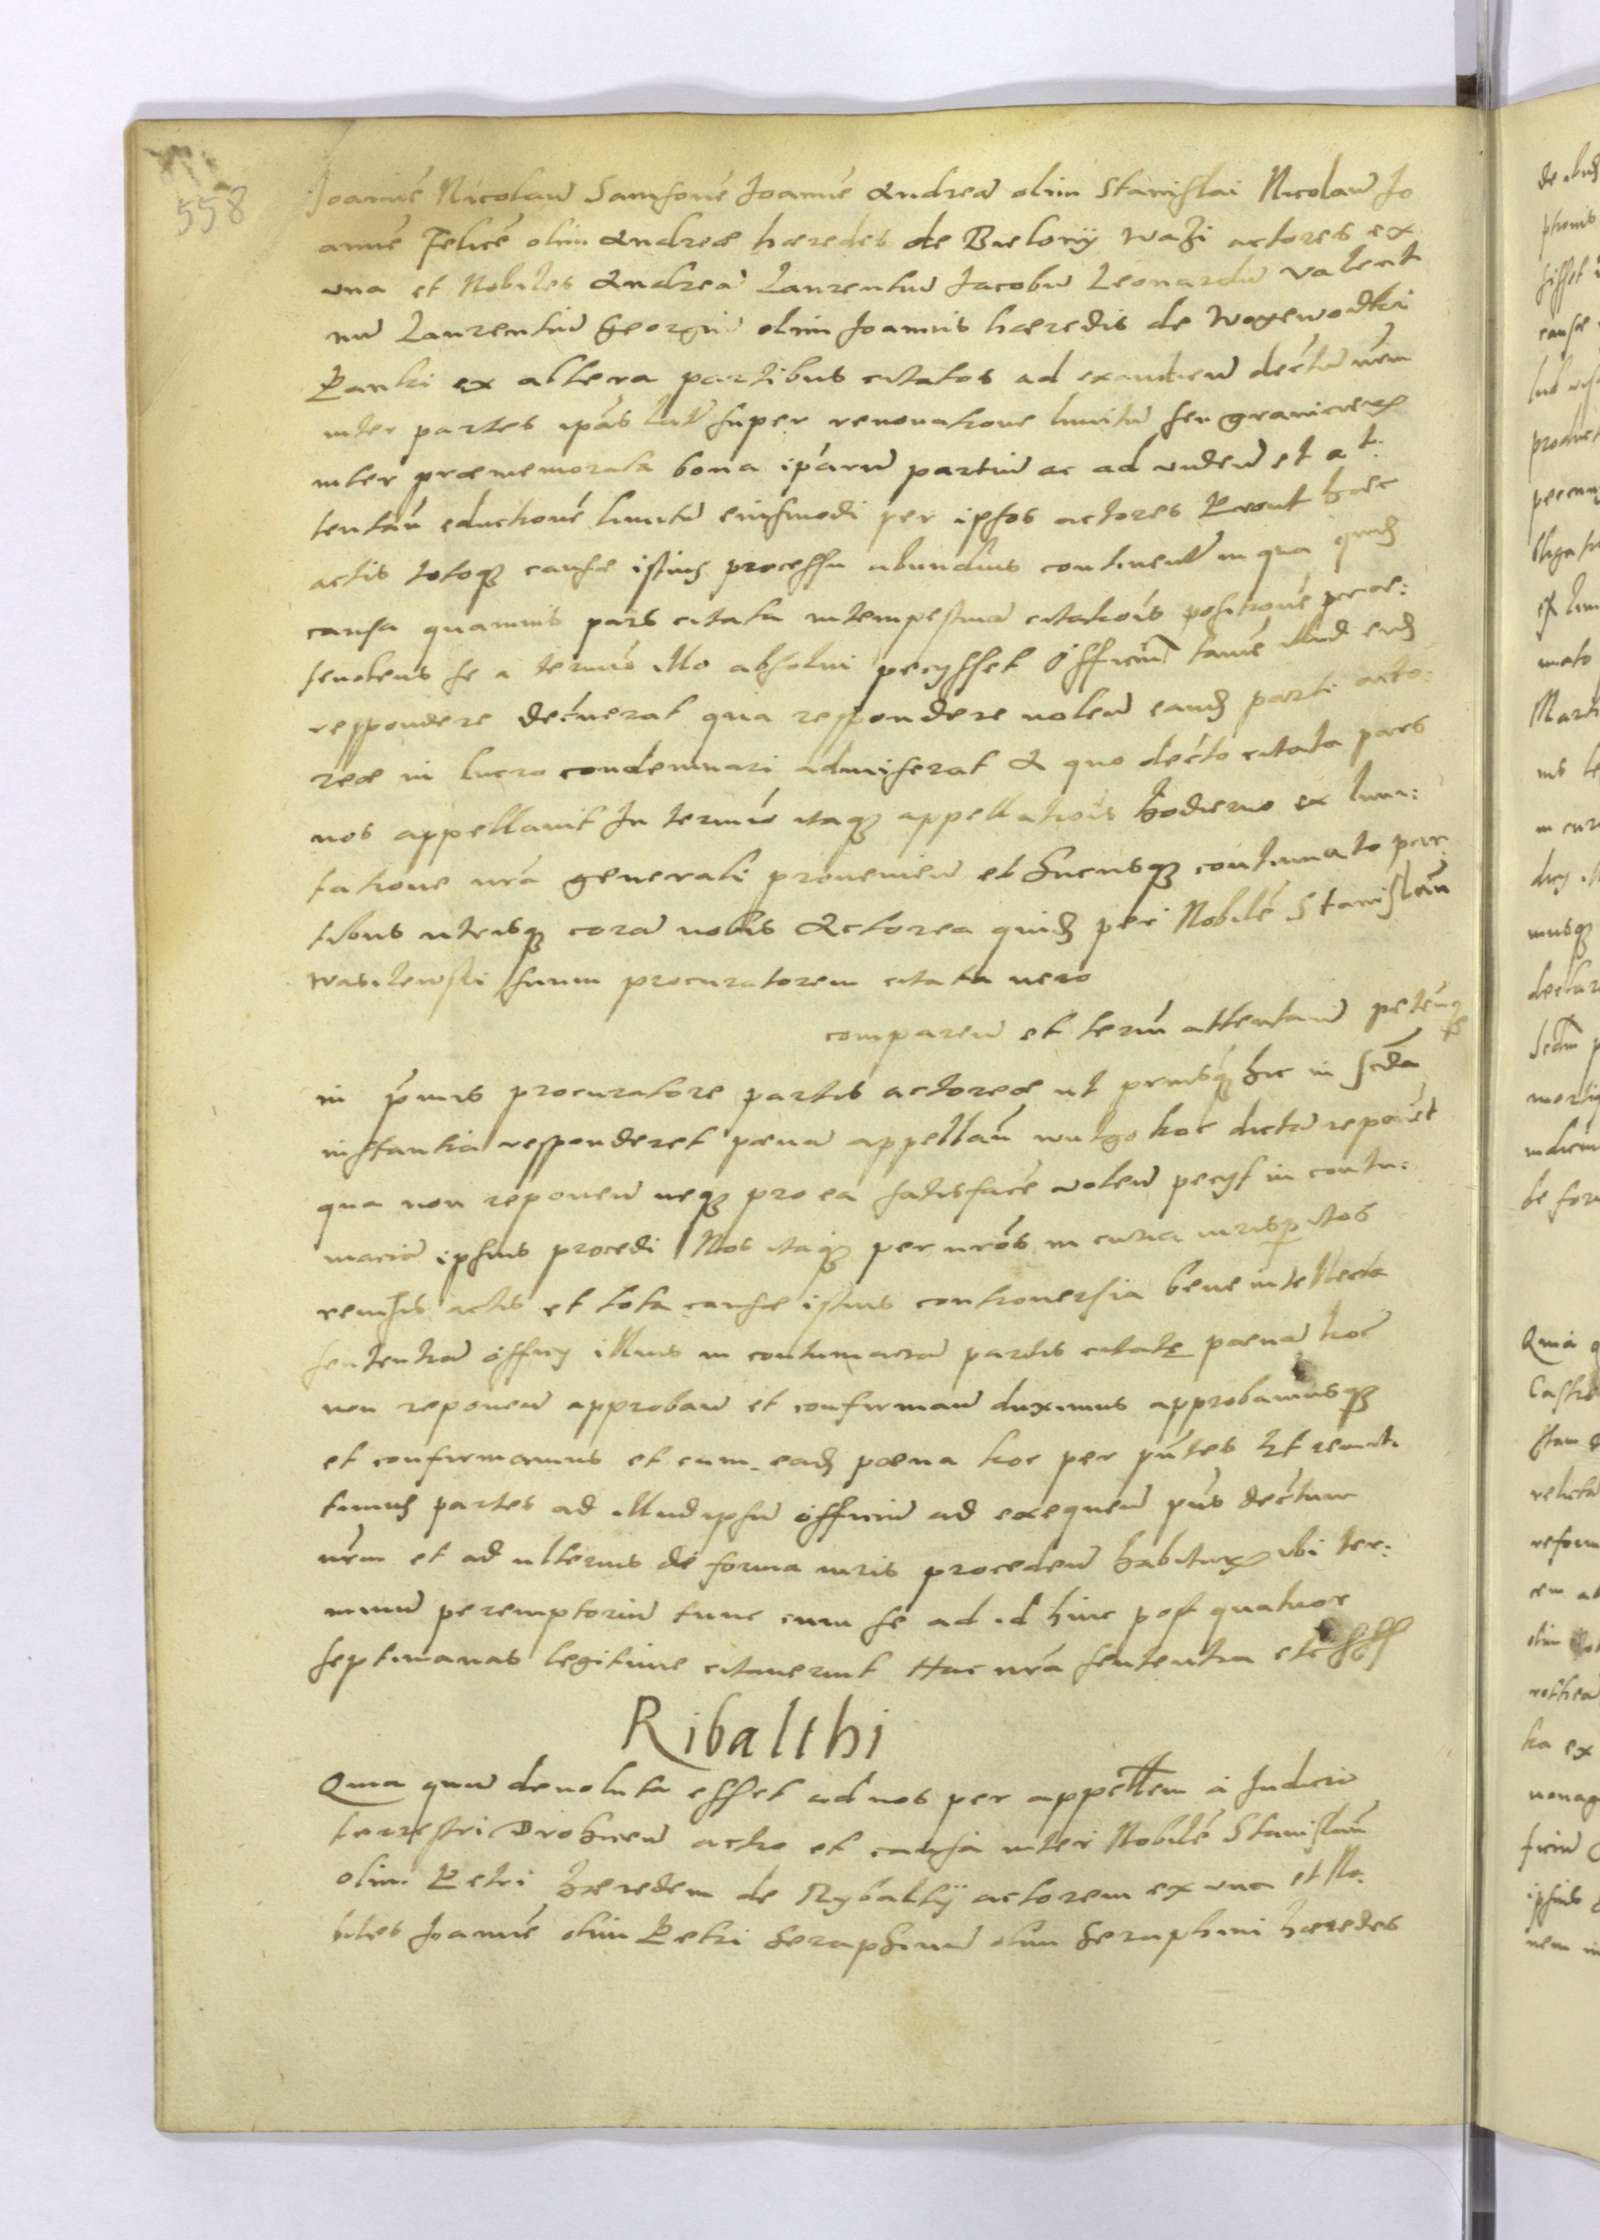 558
Joannē Nicolaū Samsonē Joannē Andreā olim Stanislai Nicolaū Jo
annē Felicē olim Andreæ hæredes de Bielony Wazi actores ex
una et Nobiles Andreā Laurentiū Jacobū Leonardū Valenti
nū Laurentiū Georgiū olim Joannis hæredis de Wogewodki
Panki ex altera partibus citatos ad exaudien̄ decrētū nr̄m
inter partes ip̄as latū super renovatione limitū seu granicierū
inter præmemorata bona ip̄arū partiū ac ad viden̄ et at.
tentan̄ eductionē limitū eiusmodi per ipsos actores Prout hæc
actis totoq causæ istius processu abundius continent̄ in qua quid
causa quamvis pars citata intempestivā citatiōis positionē præ:
tendens se a termīo illo absolvi peciisset Officiū tamē illud eid
respondere decrēverat qua respondere nolen̄ eand parti acto:
reæ in lucro condemnari admiserat A quo decrēto citata pars
nos appellavit In termīo itaq appellatiōis hodierno ex limi:
tatione nr̄a generali provenien̄ et hucusq continuato par
tibus utrisq corā nobis Actorea quid per Nobilē Stanislaū
Wasilewski suum procuratorem citata vero
comparen̄ et termī attentan̄ peten̄q
in pr̄imis procuratore partis actoreæ ut priusq hic in secūda
instantia responderet pænā appellan̄ vulgo koc dictā reponēt
qua non reponen̄ neq pro ea satisfacē volen̄ peciit in contu:
maciā ipsius procedi Nos itaq per nr̄os in curia iurisperitos
revisis actis et tota causæ istius controversia bene intellecta
sententiā officii illius in contumaciā partis citatę pænā koc
non reponen̄ approban̄ et confirman̄ duximus approbamusq
et confirmamus et cum ead pæna koc per pn̄tes Et remit.
timus partes ad illud ipsū officiū ad exequen̄ pn̄s decrētum
nr̄m et ad ulterius de forma iuris proceden̄ habiturū ubi ter:
minū peremptoriū tunc cum se ad id hinc post quatuor
septimanas legitime citaverint Hac nr̄a sententia etc
Ribalthi
Quia quū devoluta esset ad nos per appellem a Judicio
terrestri Drohicen̄ actio et causa inter Nobilē Stanislaū
olim Petri hæredem de Rybalty actorem ex una et No.
biles Joannē olim Petri Seraphinū olim Seraphini hæredes